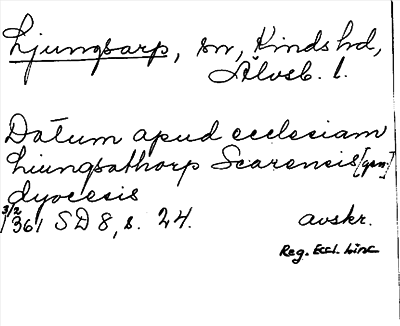 Ljungsarp, sn, Kinds hd,
Älvsb. l.
Datum apud ecclesiam
Liungsathorp Scarensis [gen]
dyocesis
3/2 1361 SD 8, s. 24. avskr.
Reg. Eccl. Linc